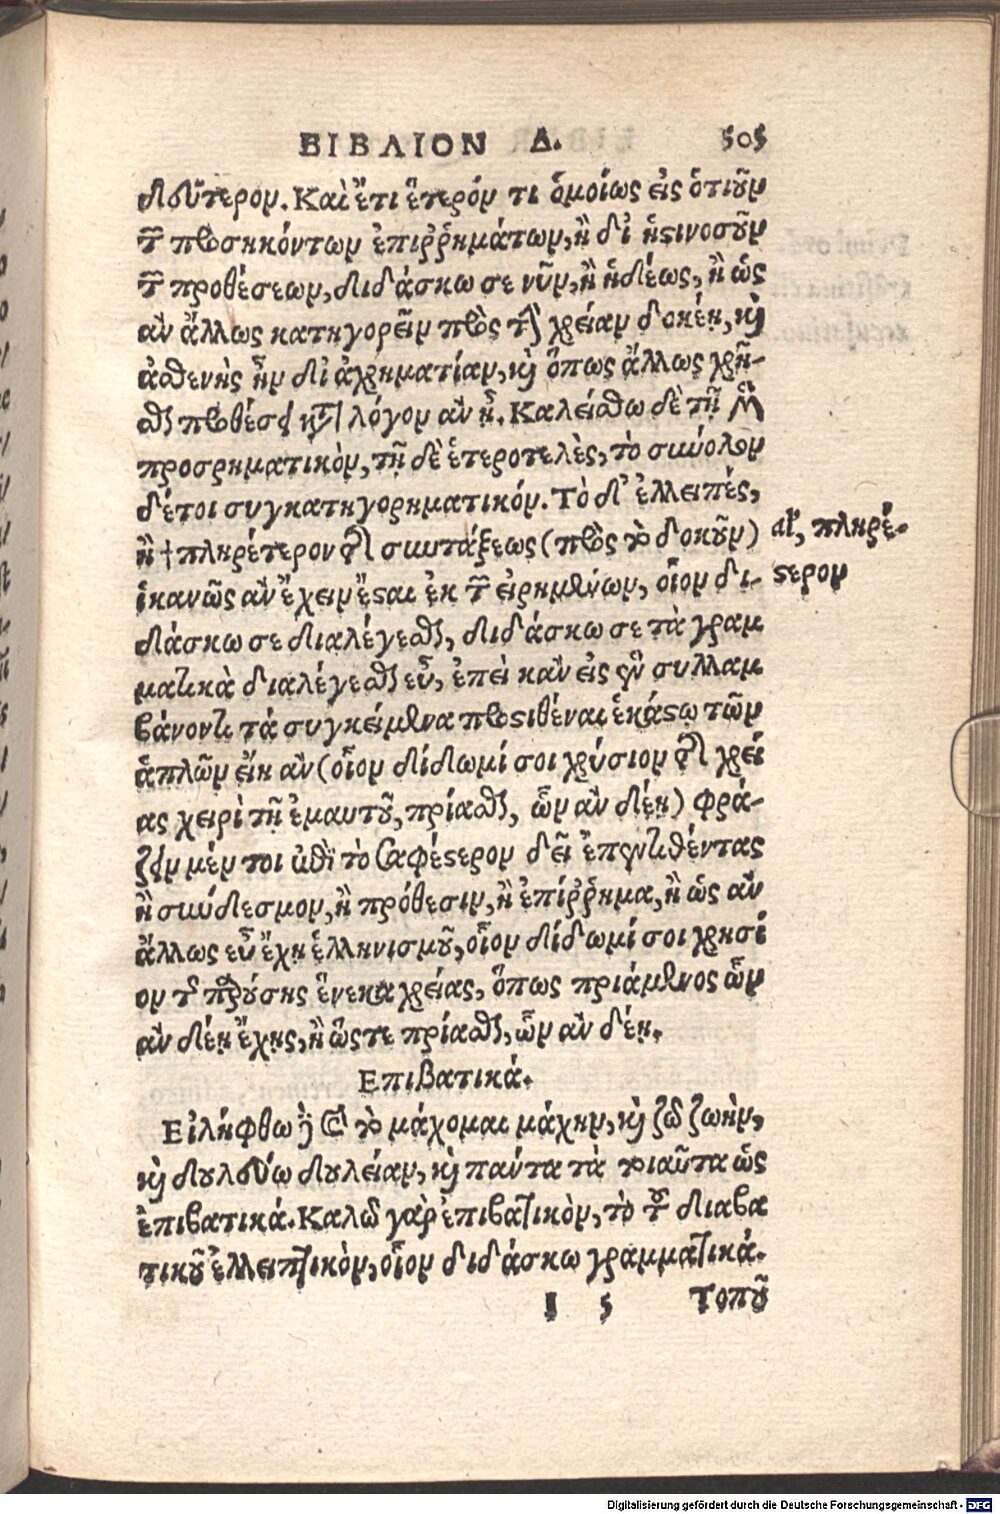 ΒΙΒΛΙΟΝ Δ. 505
δεύτερον. Καὶ ἔτι ἕτερόν τι ὁμοίως εἰς ὁτιοῦν
τῶν προσηκόντων ἐπιῤῥημάτων, ἢ δι' ἡστινοσοῦν
τῶν προθέσεων, διδάσκω σε νῦν, ἢ ἡδέως, ἢ ὡς
ἀν ἄλλως κατηγορεῖν πρὸς τὴν χρείαν δοκέῃ, καὶ
ἀσθενὴς ἦν δι' ἀχρηματίαν, καὶ ὅπως ἄλλως χρῆ-
σθαι προθέσει κατὰ λόγον ἀν ᾖ. Καλείσθω δὲ τῇ μὲν
προσρηματικὸν, τῇ δὲ ἑτεροτελὲς, τὸ σύνολον
δέτοι συγκατηγορηματικόν. Τὸ δ' ἐλλειπές,
ἢ † πληρέτερον τῆς συντάξεως (πρὸς τὸ δοκοῦν) ἄλ, πληρέ-
ἱκανῶς ἀν ἔχειν ἔσαι ἐκ τῶν εἰρημένων, οἷον δι- στερον
δάσκω σε διαλέγεσθαι, διδάσκω σε τὰ γραμ
ματικὰ διαλέγεσθαι εὖ, ἐπεὶ κἀν εἰς ἓν συλλαμ
βάνοντι τά συγκείμενα προστιθέναι ἑκάστῳ τῶν
ἁπλῶν εἴη ἀν (οἷον δίδωμί σοι χρύσιον τῆς χρεί
ας χειρὶ τῇ ἐμαυτοῦ, πρίασθαι, ὧν ἀν δέῃ) φρά-
ζειν μέν τοι ἐπὶ τὸ σαφέστερον δεῖ ἐπεντιθέντας
ἢ σύνδεσμον, ἢ πρόθεσιν, ἢ ἐπίῤῥημα, ἢ ὡς ἀν
ἄλλως εὖ ἔχῃ ἑλληνισμοῦ, οἷον δίδωμί σοι χρησί
ον τῆς παρούσης ἕνεκα χρείας, ὅπως πριάμενος ὧν
ἀν δέῃ ἔχῃς, ἢ ὥστε πρίασθαι, ὧν ἀν δέῃ.
Επιβατικά.
Εἰλήφθω δὲ καὶ τὸ μάχομαι μάχην, καὶ ζῶ ζωὴν,
καὶ δουλεύω δουλείαν, καὶ πάντα τὰ τοιαῦτα ὡς
ἐπιβατικά. Καλῶ γὰρ ἐπιβατικὸν, τὸ τοῦ διαβα
τικοῦ ἐλλειπτικὸν, οἷον διδάσκω γραμματικά.
I 5 Τοποῦ